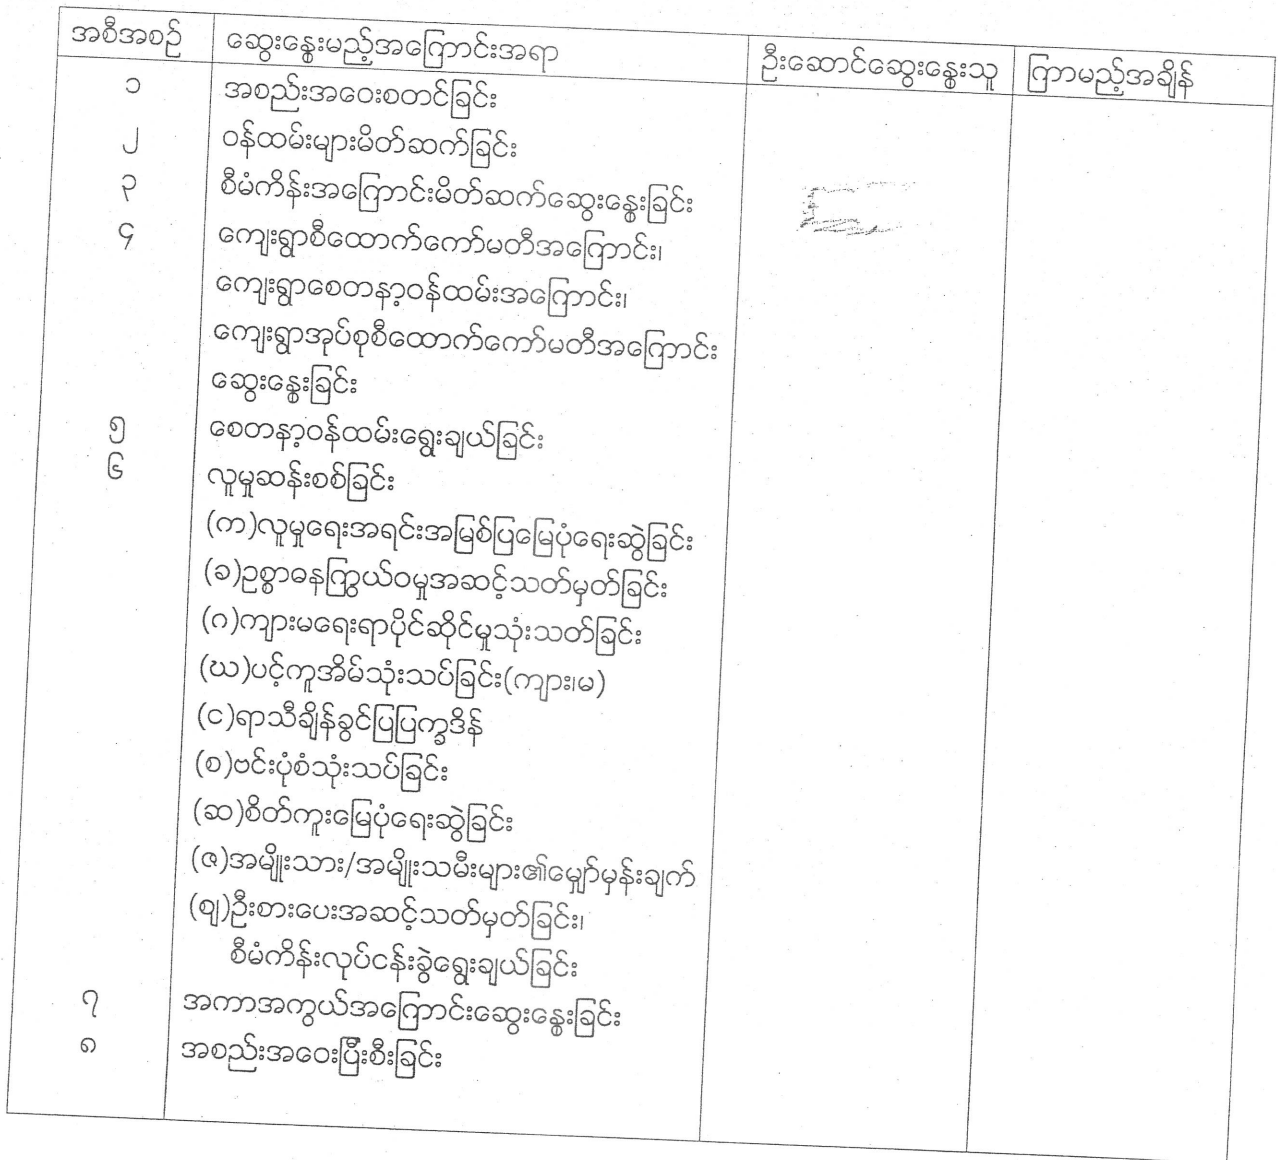 အစီအစဉ် ဆွေးနွေးမည့်အကြောင်းအရာ ဦးဆောင်ဆွေးနွေးသူ ကြာမည့်အချိန်
၁ အစည်းအဝေးစတင်ခြင်း
၂ ဝန်ထမ်းများမိတ်ဆက်ခြင်း
၃ စီမံကိန်းအကြောင်းမိတ်ဆက်ဆွေးနွေးခြင်း
၄ ကျေးရွာစီထောက်ကော်မတီအကြောင်း၊
ကျေးရွာစေတနာ့ဝန်ထမ်းအကြောင်း၊
ကျေးရွာအုပ်စုစီထောက်ကော်မတီအကြောင်း
ဆွေးနွေးခြင်း
၅ စေတနာ့ဝန်ထမ်းရွေးချယ်ခြင်း
၆ လူမှုဆန်းစစ်ခြင်း
(က)လူမှုရေးအရင်းအမြစ်ပြမြေပုံရေးဆွဲခြင်း
(ခ)ဥစ္စာဓနကြွယ်ဝမှုအဆင့်သတ်မှတ်ခြင်း
(ဂ)ကျားမရေးရာပိုင်ဆိုင်မှုသုံးသတ်ခြင်း
(ဃ)ပင့်ကူအိမ်သုံးသပ်ခြင်း(ကျား၊မ)
(င)ရာသီချိန်ခွင်ပြပြက္ခဒိန်
(စ)ဗင်းပုံစံသုံးသပ်ခြင်း
(ဆ)စိတ်ကူးမြေပုံရေးဆွဲခြင်း
(ဇ)အမျိုးသား/အမျိုးသမီးများ၏မျှော်မှန်းချက်
(ဈ)ဦးစားပေးအဆင့်သတ်မှတ်ခြင်း၊
စီမံကိန်းလုပ်ငန်းခွဲရွေးချယ်ခြင်း
၇ အကာအကွယ်အကြောင်းဆွေးနွေးခြင်း
၈ အစည်းအဝေးပြီးစီးခြင်း